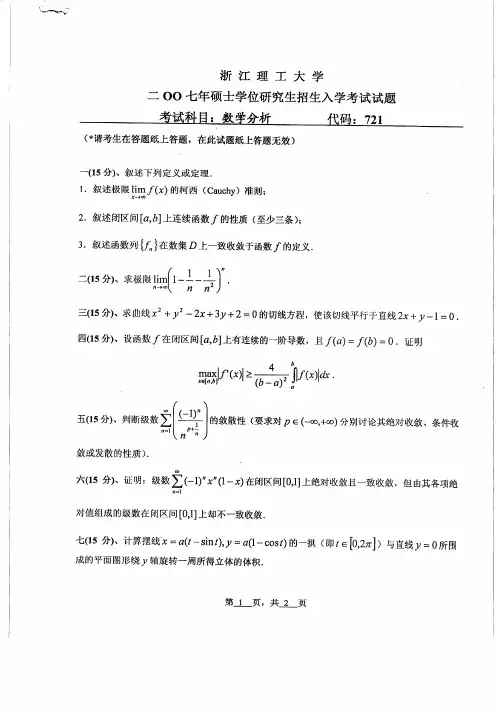 浙 江 理 工 大 学
二 OO 七年硕士学位研究生招生入学考试试题
考试科目：数学分析 代码：721
(*请考生在答题纸上答题，在此试题纸上答题无效)
一(15 分)、叙述下列定义或定理.
1．叙述极限 lim_{x→+∞} f(x) 的柯西（Cauchy）准则；
2．叙述闭区间[a,b]上连续函数 f 的性质（至少三条）；
3．叙述函数列 {f_n} 在数集 D 上一致收敛于函数 f 的定义．
二(15 分)、求极限 lim_{n→∞} (1 - 1/n - 1/n²)^n .
三(15 分)、求曲线 x² + y² - 2x + 3y + 2 = 0 的切线方程，使该切线平行于直线 2x + y - 1 = 0 .
四(15 分)、设函数 f 在闭区间[a,b]上有连续的一阶导数，且 f(a) = f(b) = 0．证明
max_{x∈[a,b]} |f'(x)| ≥ 4/(b-a)² ∫_a^b |f(x)|dx .
五(15 分)、判断级数 ∑_{n=1}^{∞} ((-1)^n / n^{p+1/n}) 的敛散性（要求对 p∈(-∞,+∞) 分别讨论其绝对收敛、条件收
敛或发散的性质）．
六(15 分)、证明：级数 ∑_{n=1}^{∞} (-1)^n x^n (1-x) 在闭区间[0,1]上绝对收敛且一致收敛，但由其各项绝
对值组成的级数在闭区间[0,1]上却不一致收敛．
七(15 分)、计算摆线 x = a(t - sin t), y = a(1 - cos t) 的一拱（即 t∈[0,2π]）与直线 y = 0 所围
成的平面图形绕 y 轴旋转一周所得立体的体积．
第 1 页，共 2 页